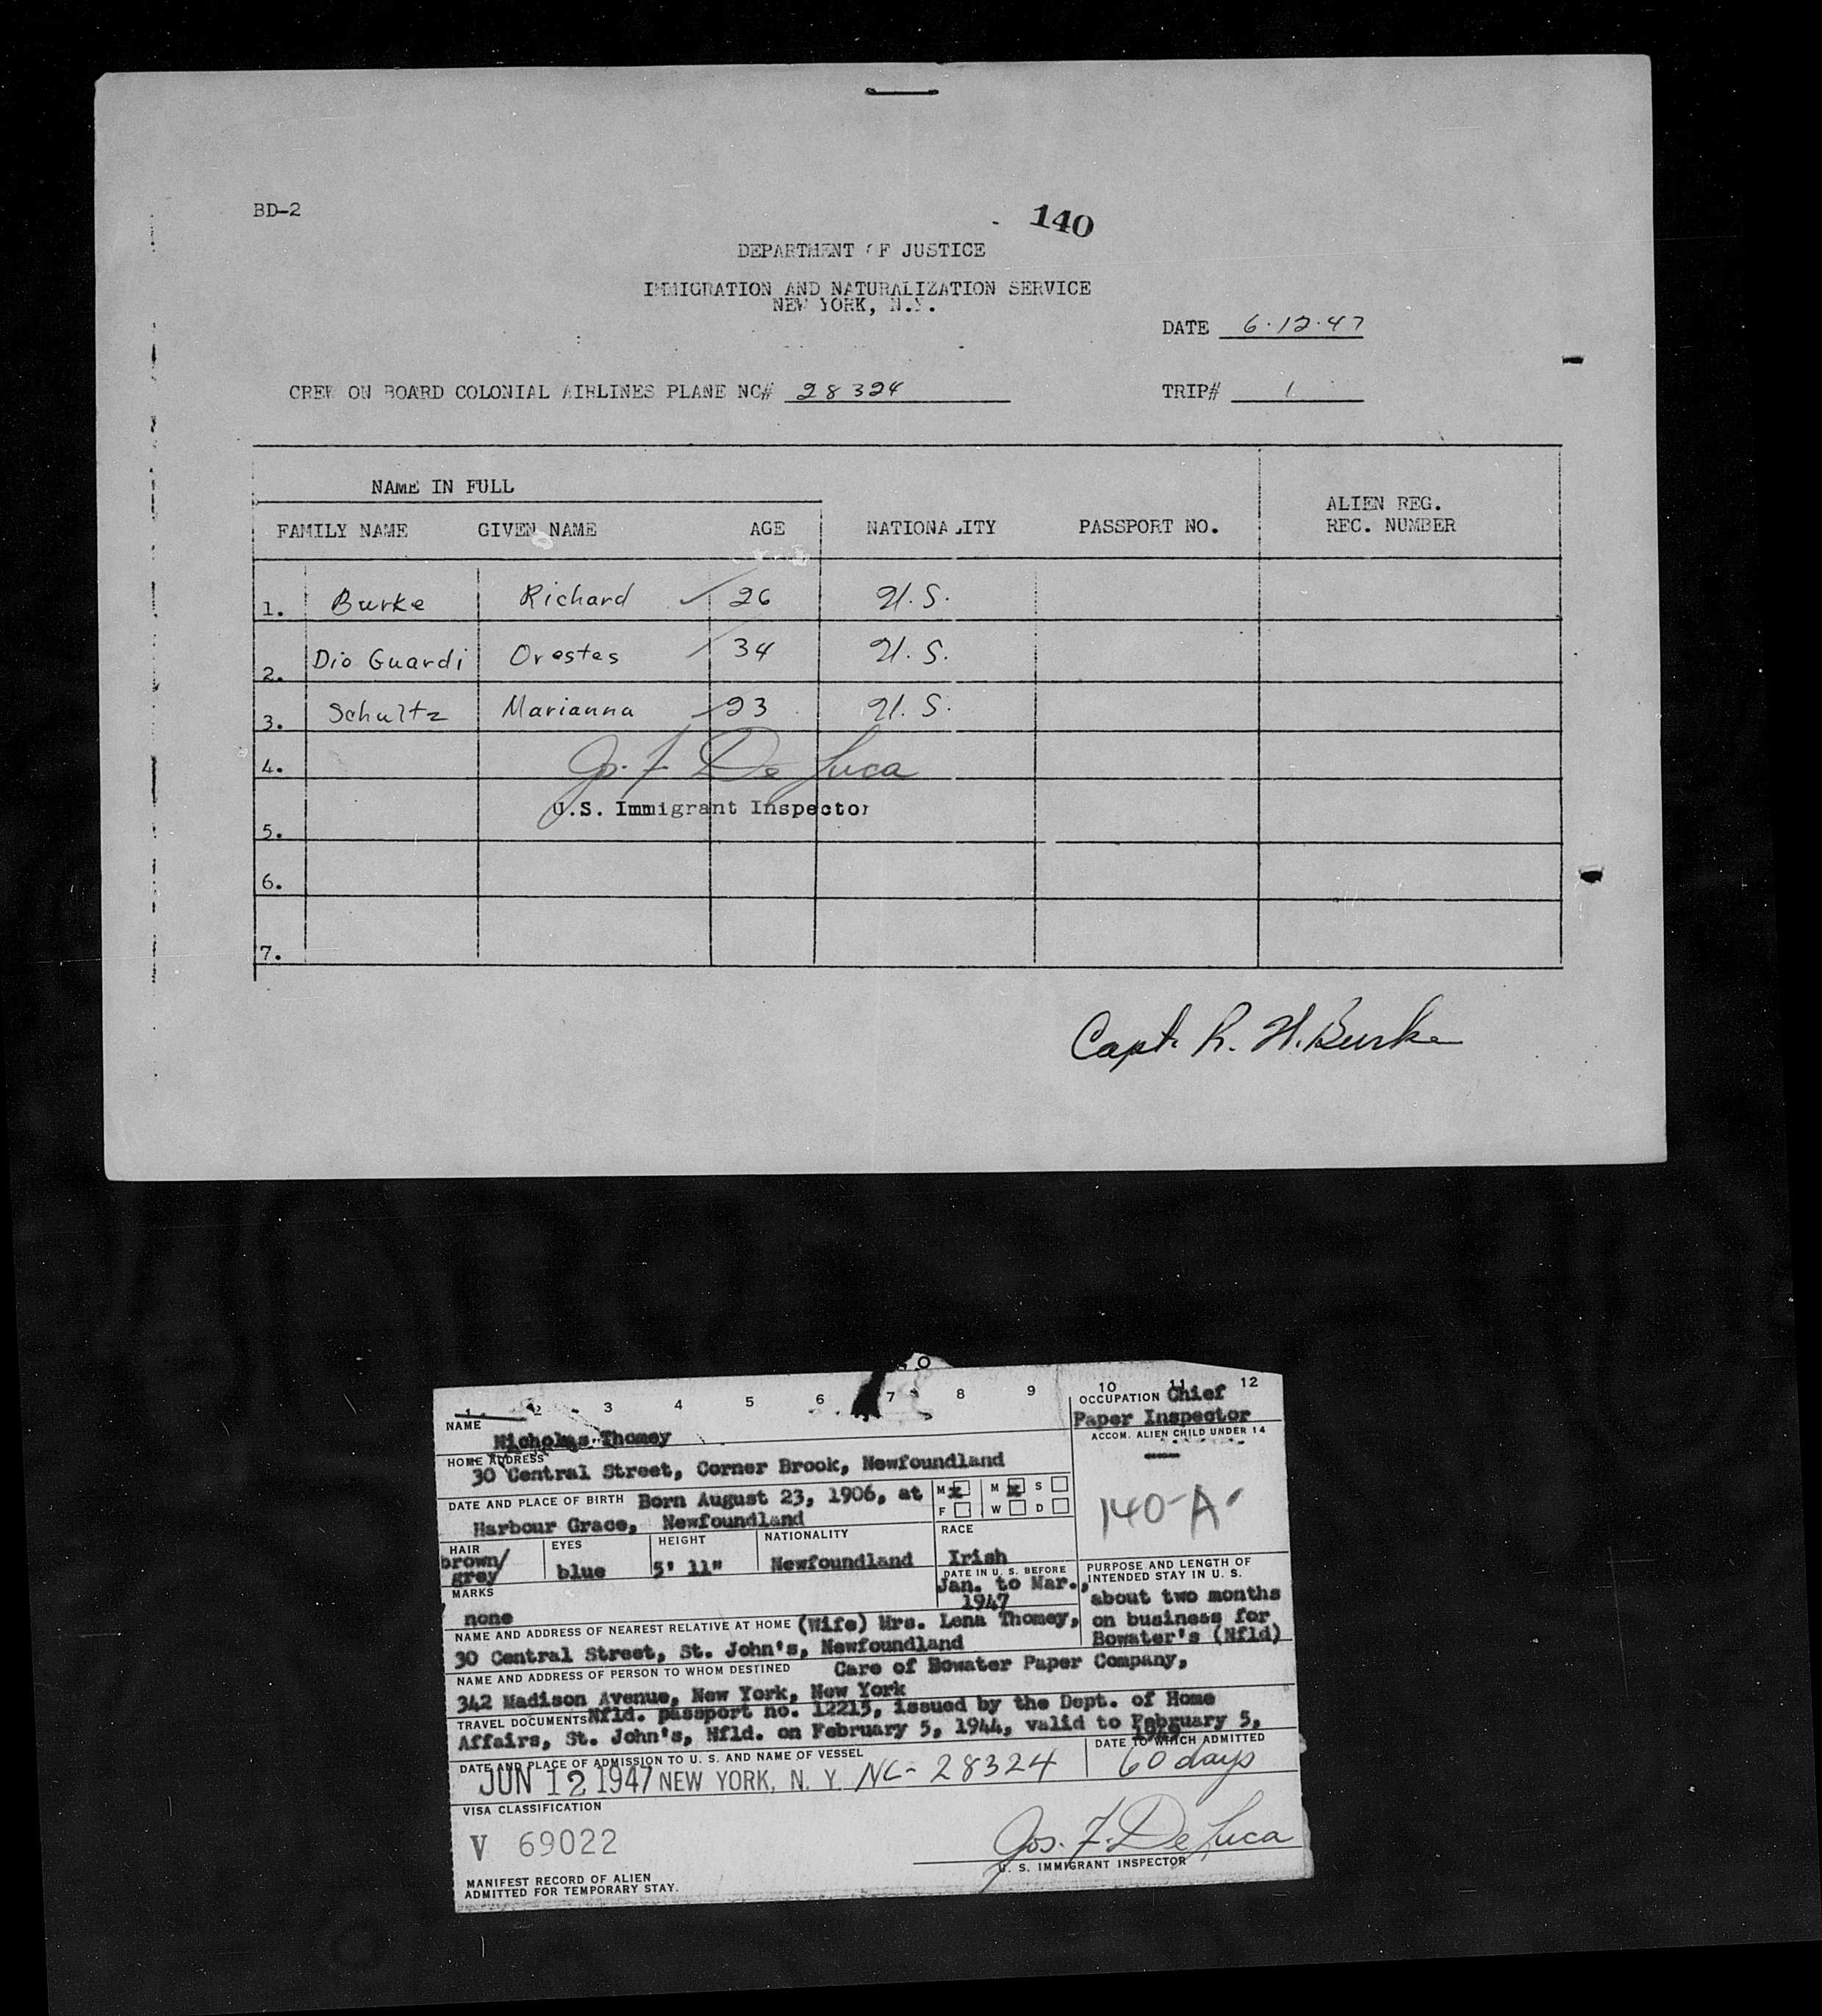 BD-2
140
DEPARTMENT OF JUSTICE
IMMIGRATION AND NATURALIZATION SERVICE
NEW YORK, N.Y.
DATE 6.12.47
CREW ON BOARD COLONIAL AIRLINES PLANE NC# 28324 TRIP# 1
NAME IN FULL
ALIEN REG.
FAMILY NAME GIVEN NAME AGE NATIONALITY PASSPORT NO. REC. NUMBER
1. Burke Richard 26 U.S.
2. Dio Guardi Orestes 34 U.S.
3. Schultz Marianna 23 U.S.
4. Jos. F. De Luca
U.S. Immigrant Inspector
5.
6.
7.
Capt. R. H. Burke
1 2 3 4 5 6 7 8 9 10 11 12
NAME
Nicholas Thomey
OCCUPATION Chief
Paper Inspector
ACCOM. ALIEN CHILD UNDER 14
HOME ADDRESS
30 Central Street, Corner Brook, Newfoundland
DATE AND PLACE OF BIRTH Born August 23, 1906, at
Harbour Grace, Newfoundland
M x M x S
F W D
140-A
HAIR EYES HEIGHT NATIONALITY RACE
brown/
grey blue 5' 11" Newfoundland Irish
MARKS
none
DATE IN U. S. BEFORE
Jan. to Mar.,
1947
PURPOSE AND LENGTH OF
INTENDED STAY IN U. S.
about two months
on business for
Bowater's (Nfld)
NAME AND ADDRESS OF NEAREST RELATIVE AT HOME (Wife) Mrs. Lena Thomey,
30 Central Street, St. John's, Newfoundland
NAME AND ADDRESS OF PERSON TO WHOM DESTINED Care of Bowater Paper Company,
342 Madison Avenue, New York, New York
TRAVEL DOCUMENTS Nfld. passport no. 12215, issued by the Dept. of Home
Affairs, St. John's, Nfld. on February 5, 1944, valid to February 5,
DATE AND PLACE OF ADMISSION TO U. S. AND NAME OF VESSEL DATE TO WHICH ADMITTED
JUN 12 1947 NEW YORK, N. Y. NC-28324 60 days
VISA CLASSIFICATION
V 69022
Jos. F. De Luca
U. S. IMMIGRANT INSPECTOR
MANIFEST RECORD OF ALIEN
ADMITTED FOR TEMPORARY STAY.